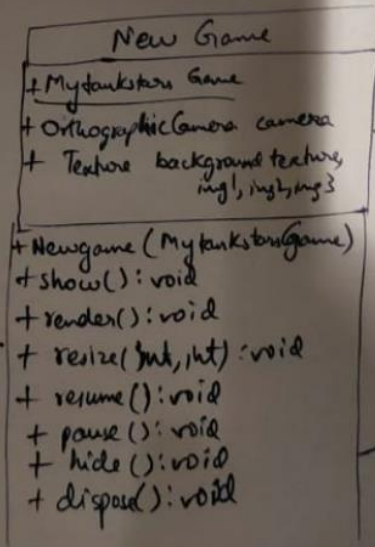 New Game
+ Mytankstars Game
+ OrthographicCamera camera
+ Texture backgroundtexture,
img1, img2, img3
+ Newgame (MytankstarsGame)
+ show() : void
+ render() : void
+ resize(Int, int) : void
+ resume() : void
+ pause() : void
+ hide() : void
+ dispose() : void